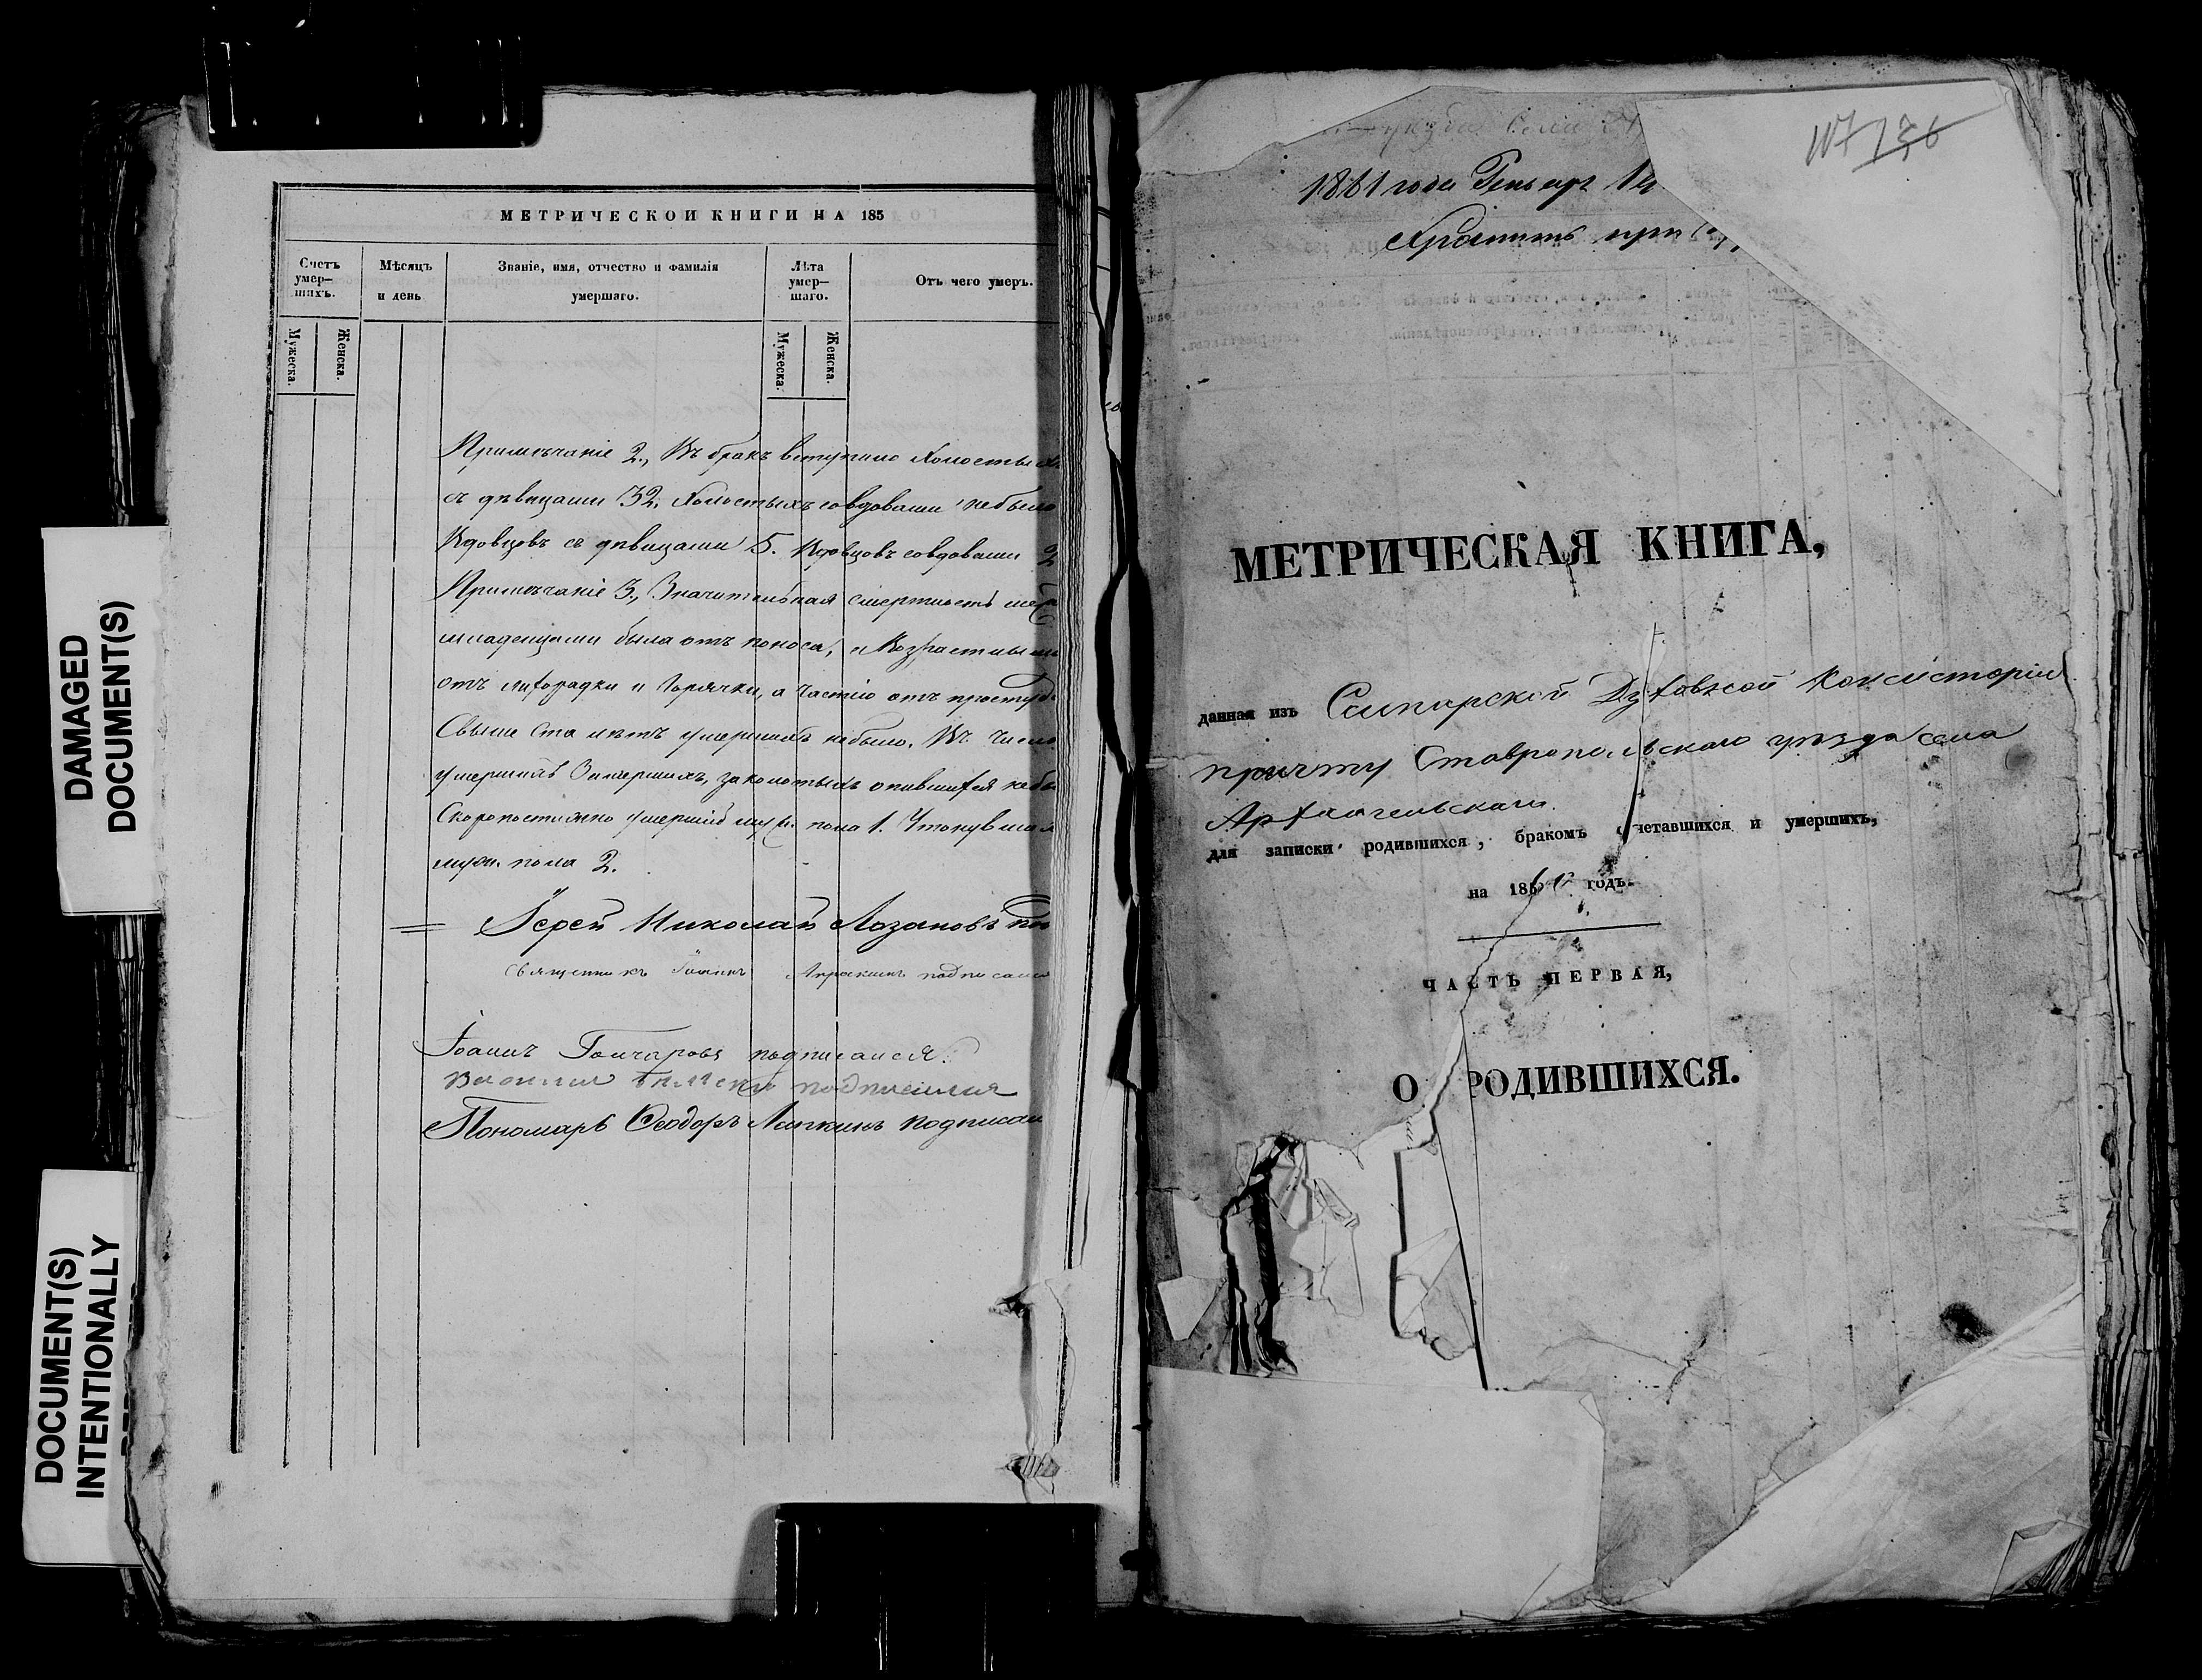 DAMAGED
DOCUMENT(S)
DOCUMENT(S)
INTENTIONALLY
МЕТРИЧЕСКОЙ КНИГИ НА 185
Счетъ умерших. Мѣсяцъ и день Званіе, имя, отчество и фамилія умершаго. Лѣта умершаго. Отъ чего умеръ.
Мужеска. Женска. Мужеска. Женска.
Примѣчаніе 2., Въ бракъ вступило Холостыхъ
съ дѣвицами 32. Холостыхъ со вдовами не было
Вдовцовъ съ дѣвицами 5. Вдовцовъ со вдовами 2
Примѣчаніе 3., Значительная смертность
младенцами была отъ поноса, а Возрастными
отъ лихорадки и Горячки, а частію отъ простуды
Свыше Ста лѣтъ умершихъ не было. Въ числѣ
умершихъ Замерзшихъ, заколотыхъ опившихся не бы
Скоропостижно умершій муж. пола 1. Утонувшихъ
муж. пола 2.
Іерей Николай Лазановъ
Священникъ Іоаннъ подписался
Іоаннъ Гончаровъ подписался.
подписался
Пономарь Ѳеодоръ Лапкинъ подписал
117 136
1861 года Генваря 14
Хранить при
МЕТРИЧЕСКАЯ КНИГА,
данная изъ Самарской Духовной Консисторіи
причту Ставропольскаго уѣзда села
Архангельскаго
для записки родившихся, бракомъ сочетавшихся и умершихъ,
на 1861 годъ.
ЧАСТЬ ПЕРВАЯ,
О РОДИВШИХСЯ.